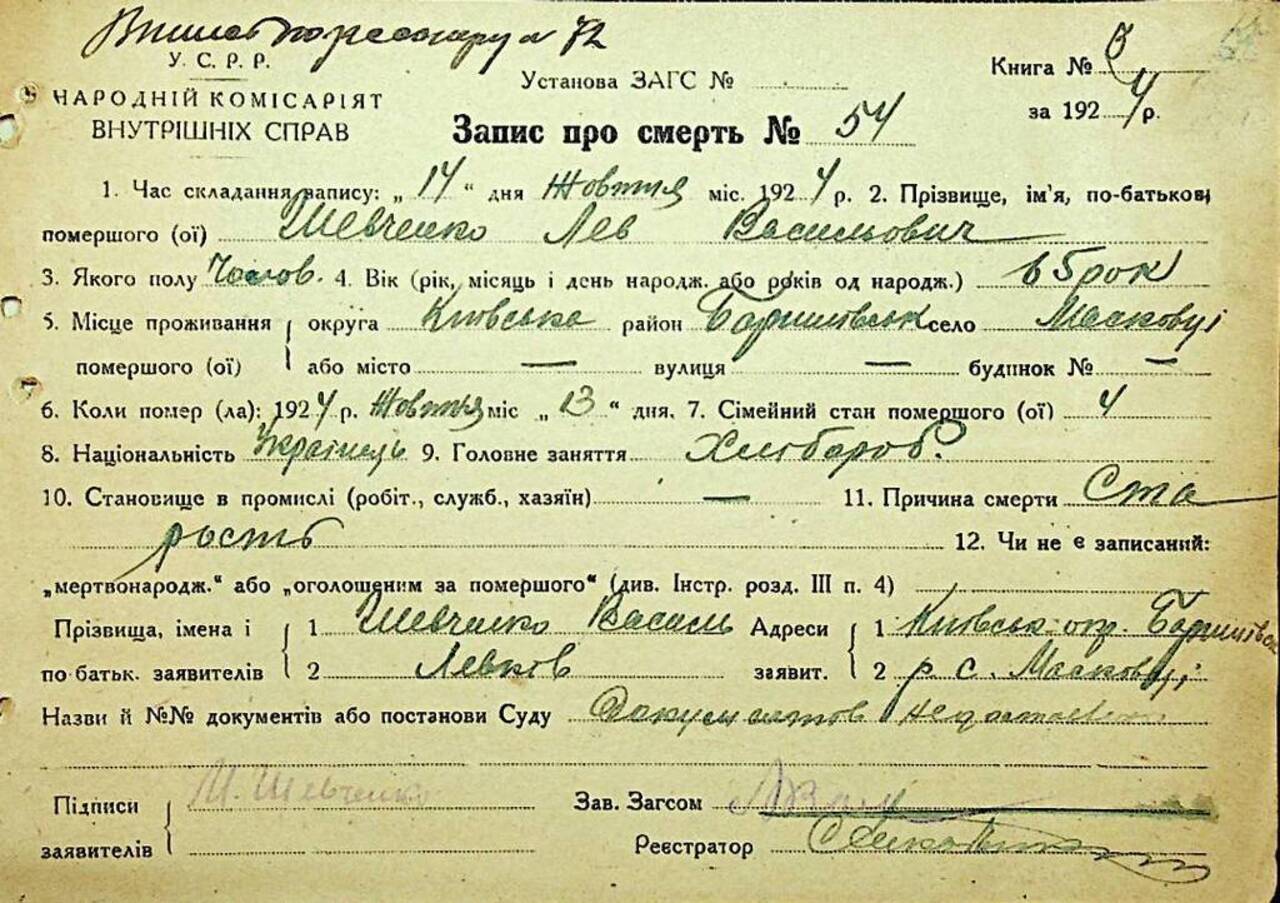 У. С. Р. Р.
НАРОДНІЙ КОМІСАРІЯТ
ВНУТРІШНІХ СПРАВ
Установа ЗАГС №
Книга № 3
за 1924 р.
Запис про смерть № 54
1. Час складання запису: „ 14 “ дня Жовтня міс. 1924 р. 2. Прізвище, ім'я, по-батькові
помершого (ої) Шевченко Лев Васильович
3. Якого полу Чолов. 4. Вік (рік, місяць і день народж. або років од народж.) 65 рок
5. Місце проживання округа Київська район Баришівськ село Масковці
помершого (ої) або місто — вулиця — будинок № —
6. Коли помер (ла): 1924 р. Жовтня міс „ 13 “ дня. 7. Сімейний стан помершого (ої) 4
8. Національність Українець 9. Головне заняття Хлібороб.
10. Становище в промислі (робіт., служб., хазяїн) — 11. Причина смерти Ста
рость 12. Чи не є записаний:
„мертвонародж.“ або „оголошеним за помершого“ (див. Інстр. розд. III п. 4)
Прізвища, імена і 1 Шевченко Василь Адреси 1 Київськ. окр. Баришівськ
по батьк. заявителів 2 Левков заявит. 2 р. с. Масковці
Назви й №№ документів або постанови Суду Документов
Підписи М. Шевченко Зав. Загсом
заявителів Реєстратор